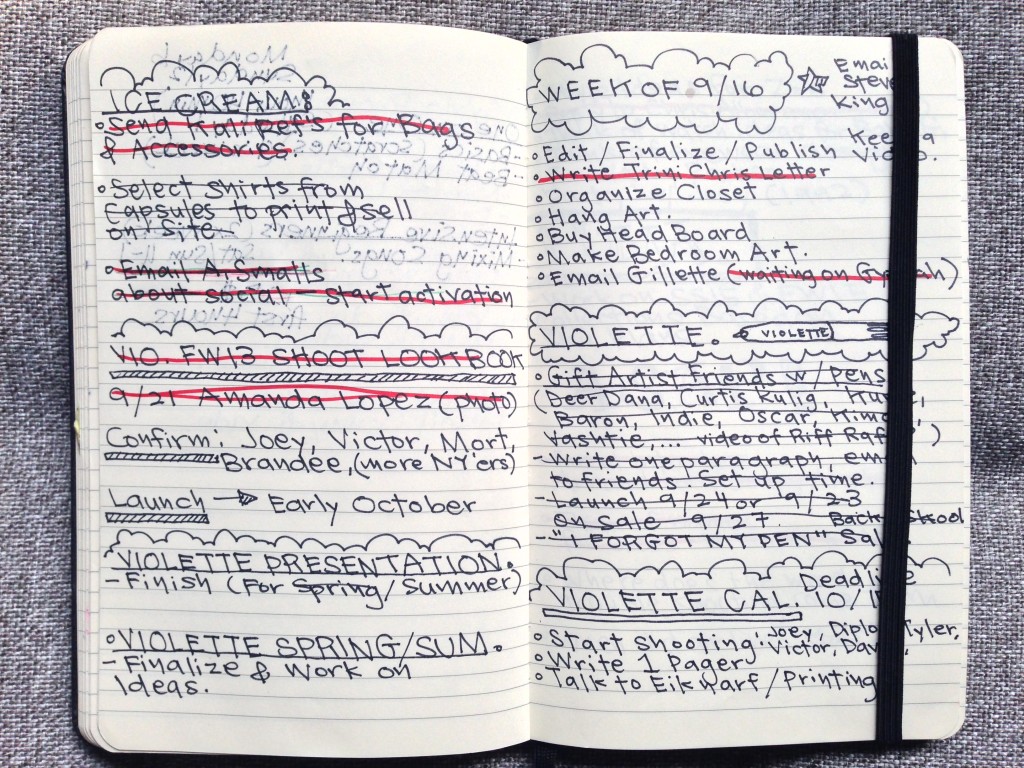 ICE CREAM:
Send Kali Ref's for Bags
& Accessories.
Select shirts from
Capsules to print & sell
on site.
Email A. Smalls
about social - start activation
VIO. FW13 SHOOT LOOKBOOK
9/21 Amanda Lopez (photo)
Confirm: Joey, Victor, Mort,
Brandee, (more NY'ers)
Launch → Early October
VIOLETTE PRESENTATION.
- Finish (For Spring/Summer)
VIOLETTE SPRING/SUM.
- Finalize & Work on
Ideas.
WEEK OF 9/16
Emai
Steve
King
Keep a
Video.
Edit / Finalize / Publish
Write Trini Chris Letter
Organize Closet
Hang Art.
Buy Head Board
Make Bedroom Art.
Email Gillette (waiting on)
VIOLETTE.
VIOLETTE
Gift Artist Friends w/ pens
(Deer Dana, Curtis Kulig,
Baron, Indie, Oscar,
Vashtie, ... video of Riff Raff)
- Write one paragraph, em
to friends. Set up time.
- Launch 9/24 or 9/23
on sale 9/27. Back School
- "I FORGOT MY PEN" Sal
Deadline
VIOLETTE CAL. 10/1
Start Shooting: Joey, Diplo, Tyler,
Victor,
Write 1 Pager
Talk to Eik Warf / Printing